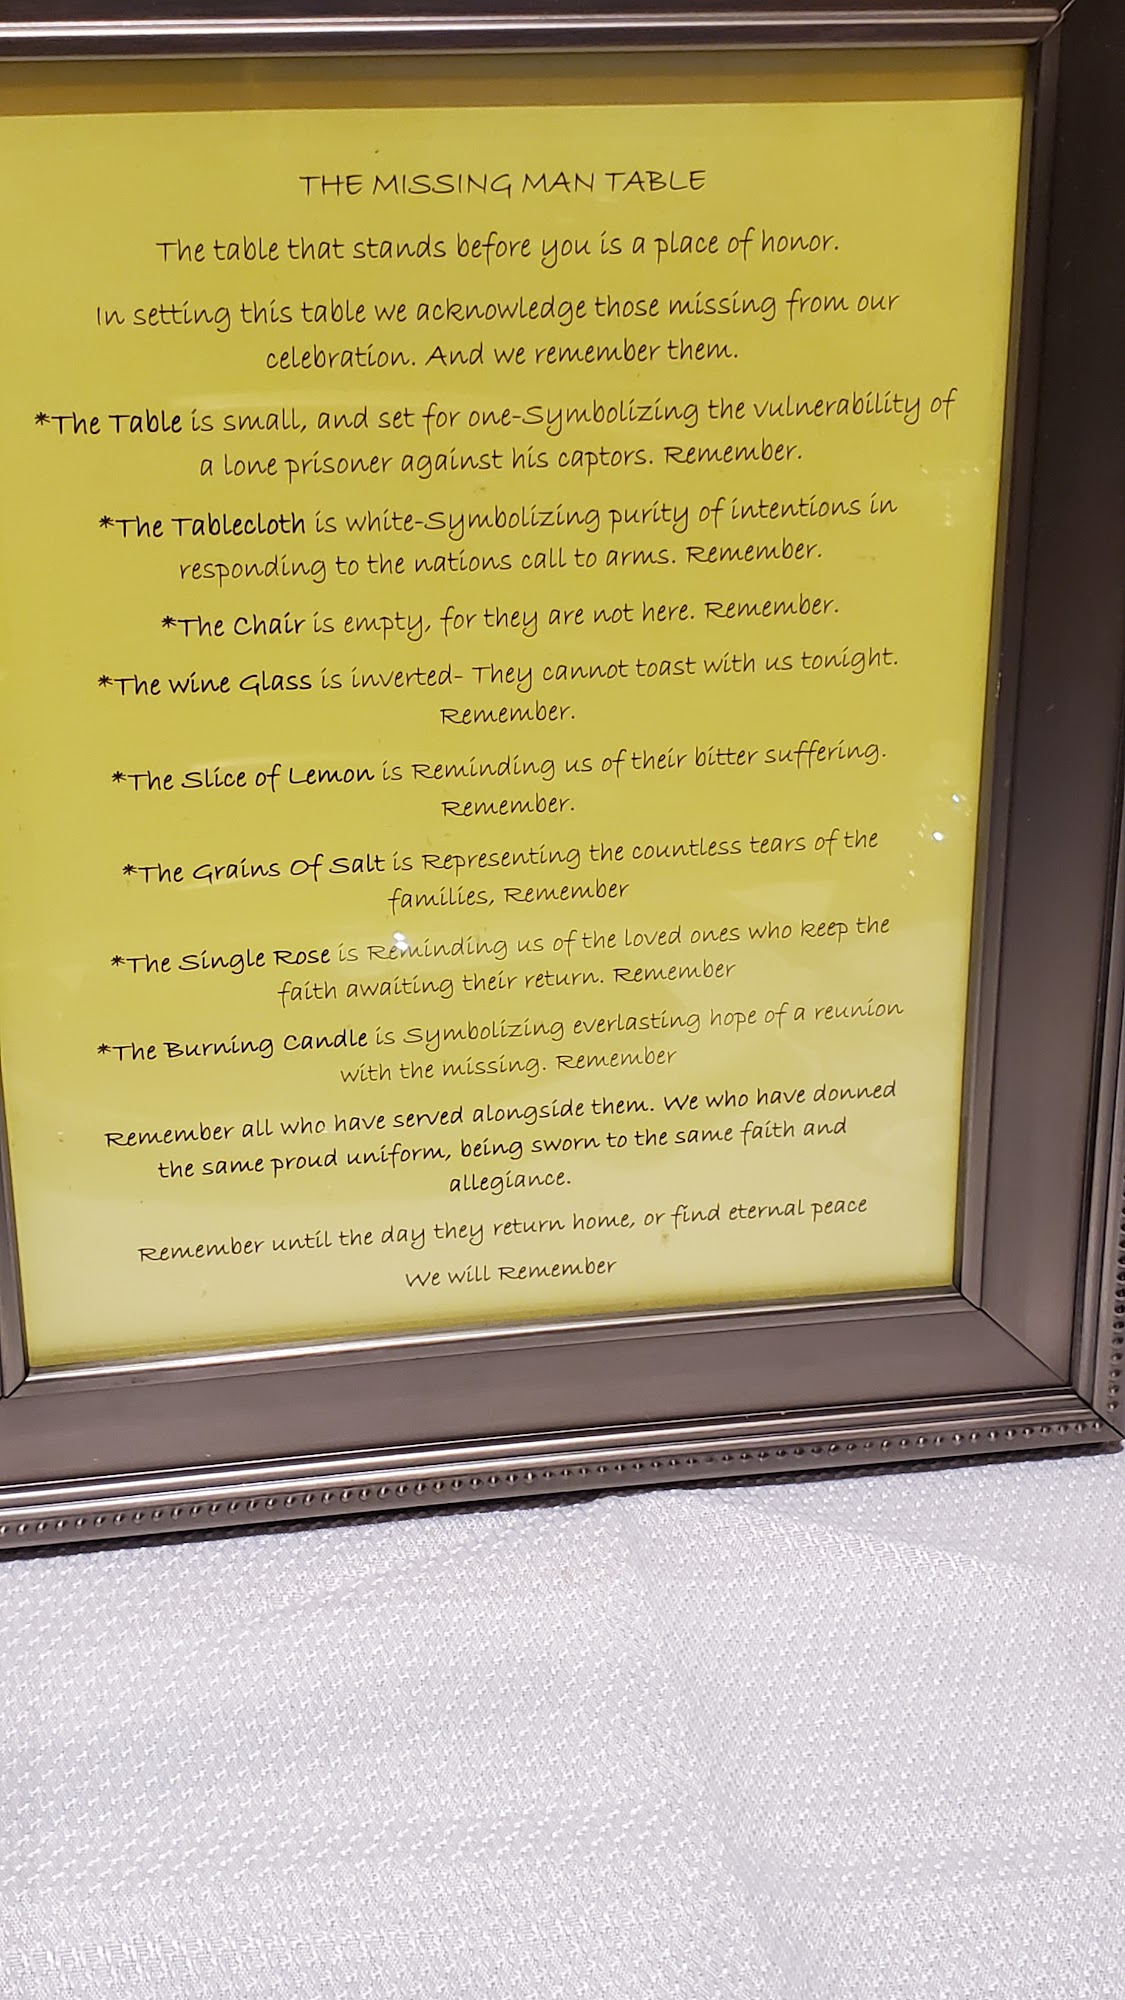 THE MISSING MAN TABLE
The table that stands before you is a place of honor.
In setting this table we acknowledge those missing from our
celebration. And we remember them.
*The Table is small, and set for one-Symbolizing the vulnerability of
a lone prisoner against his captors. Remember.
*The Tablecloth is white-Symbolizing purity of intentions in
responding to the nations call to arms. Remember.
*The Chair is empty, for they are not here. Remember.
*The Wine Glass is inverted- They cannot toast with us tonight.
Remember.
*The Slice of Lemon is Reminding us of their bitter suffering.
Remember.
*The Grains Of Salt is Representing the countless tears of the
families, Remember
*The Single Rose is Reminding us of the loved ones who keep the
faith awaiting their return. Remember
*The Burning Candle is Symbolizing everlasting hope of a reunion
with the missing. Remember
Remember all who have served alongside them. We who have donned
the same proud uniform, being sworn to the same faith and
allegiance.
Remember until the day they return home, or find eternal peace
We will Remember